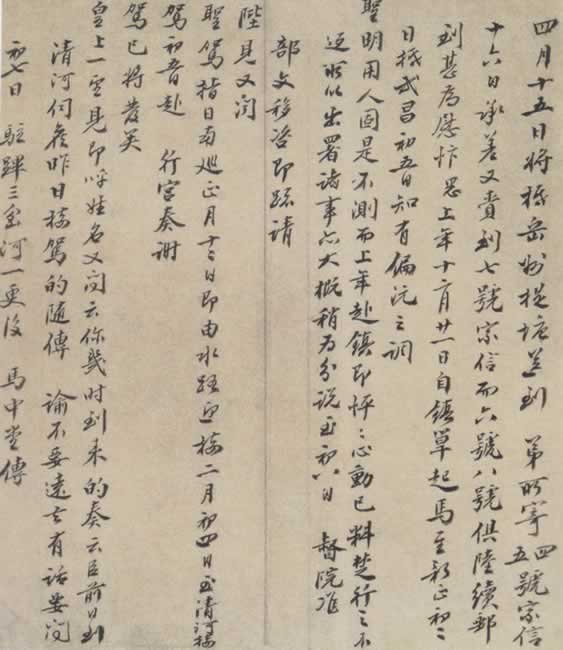 四月十五日將抵岳州從塘差到 第所寄四五號家信
十六日承差又賫到七號家信而六號八號俱陸續郵
到甚為慰忭愚上年十二月廿一日自鎮草起馬至新正初二
日抵武昌初五日知有偏沅之調
聖明用人固是不測而上年赴鎮即怦〻心動已料楚行之不
返所以出署諸事亦大概稍為分說至初八日 督院准
部文移咨即疏請
陛見又聞
聖駕指日南巡正月十二日即由水路迎接二月初四日至清河接
駕初五日赴 行宮奏謝
駕已將發矣
皇上一望見即呼姓名又問云你幾時到來的奏云臣前日到
清河伺候昨日接駕的隨傳 諭不要遠去有話要問
初七日 駐蹕三岔河一更後 馬中堂傳